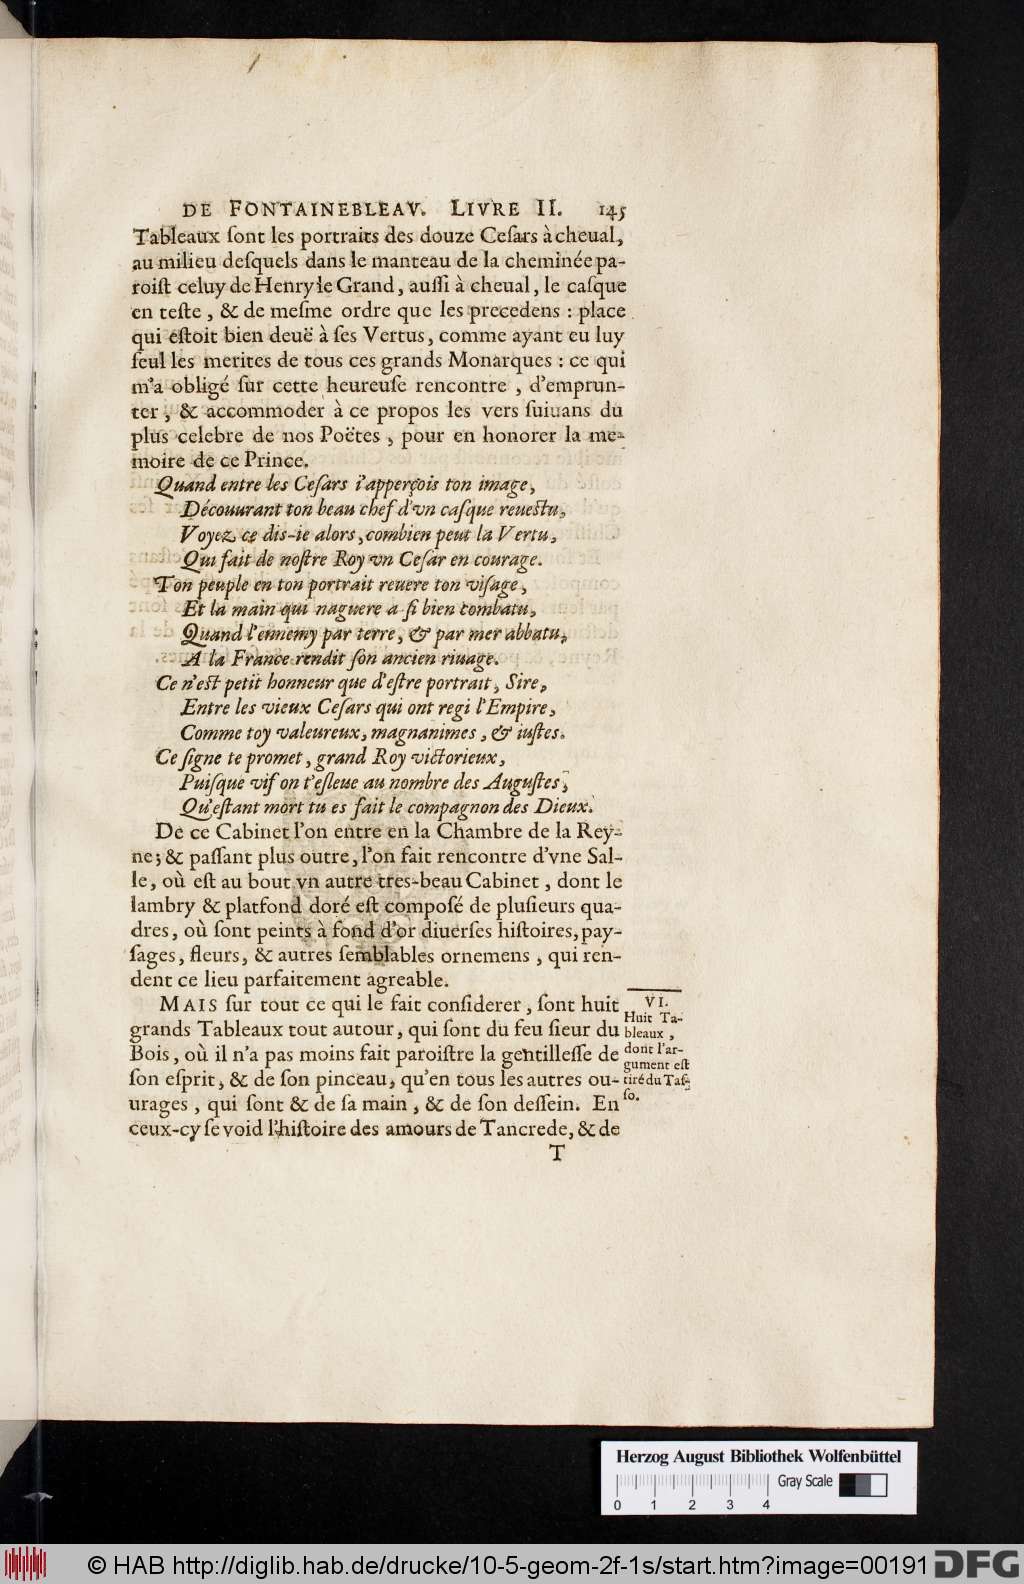 DE FONTAINEBLEAV. LIVRE II. 145
Tableaux ſont les portraits des douze Ceſars à cheual,
au milieu deſquels dans le manteau de la cheminée pa-
roiſt celuy de Henry le Grand, auſſi à cheual, le caſque
en teſte, & de meſme ordre que les precedens : place
qui eſtoit bien deuë à ſes Vertus, comme ayant eu luy
ſeul les merites de tous ces grands Monarques : ce qui
m'a obligé ſur cette heureuſe rencontre, d'emprun-
ter, & accommoder à ce propos les vers ſuiuans du
plus celebre de nos Poëtes, pour en honorer la me-
moire de ce Prince.
Quand entre les Ceſars i'apperçois ton image,
Découurant ton beau chef d'vn caſque reueſtu,
Voyez ce dis-ie alors, combien peut la Vertu,
Qui fait de noſtre Roy vn Ceſar en courage.
Ton peuple en ton portrait reuere ton viſage,
Et la main qui naguere a ſi bien combatu,
Quand l'ennemy par terre, & par mer abbatu,
A la France rendit ſon ancien riuage.
Ce n'eſt petit honneur que d'eſtre portrait, Sire,
Entre les vieux Ceſars qui ont regi l'Empire,
Comme toy valeureux, magnanimes, & iuſtes.
Ce ſigne te promet, grand Roy victorieux,
Puiſque vif on t'eſleue au nombre des Auguſtes,
Qu'eſtant mort tu es fait le compagnon des Dieux.
De ce Cabinet l'on entre en la Chambre de la Rey-
ne; & paſſant plus outre, l'on fait rencontre d'vne Sal-
le, où eſt au bout vn autre tres-beau Cabinet, dont le
lambry & platfond doré eſt compoſé de pluſieurs qua-
dres, où ſont peints à fond d'or diuerſes hiſtoires, pay-
ſages, fleurs, & autres ſemblables ornemens, qui ren-
dent ce lieu parfaitement agreable.
MAIS ſur tout ce qui le fait conſiderer, ſont huit
grands Tableaux tout autour, qui ſont du feu ſieur du
Bois, où il n'a pas moins fait paroiſtre la gentilleſſe de
ſon eſprit, & de ſon pinceau, qu'en tous les autres ou-
urages, qui ſont & de ſa main, & de ſon deſſein. En
ceux-cy ſe void l'hiſtoire des amours de Tancrede, & de
T
VI.
Huit Ta-
bleaux,
dont l'ar-
gument eſt
tiré du Taſ-
ſo.
Herzog August Bibliothek Wolfenbüttel
Gray Scale
0 1 2 3 4
© HAB http://diglib.hab.de/drucke/10-5-geom-2f-1s/start.htm?image=00191
DFG